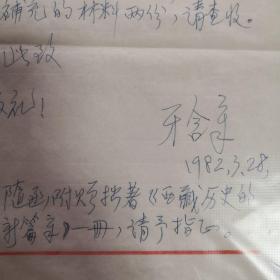 补充的材料两份，请查收。
此致
敬礼！
牙含章
1982.3.28.
随函附赠拙著《西藏历史的
新篇章》一册，请予指正。